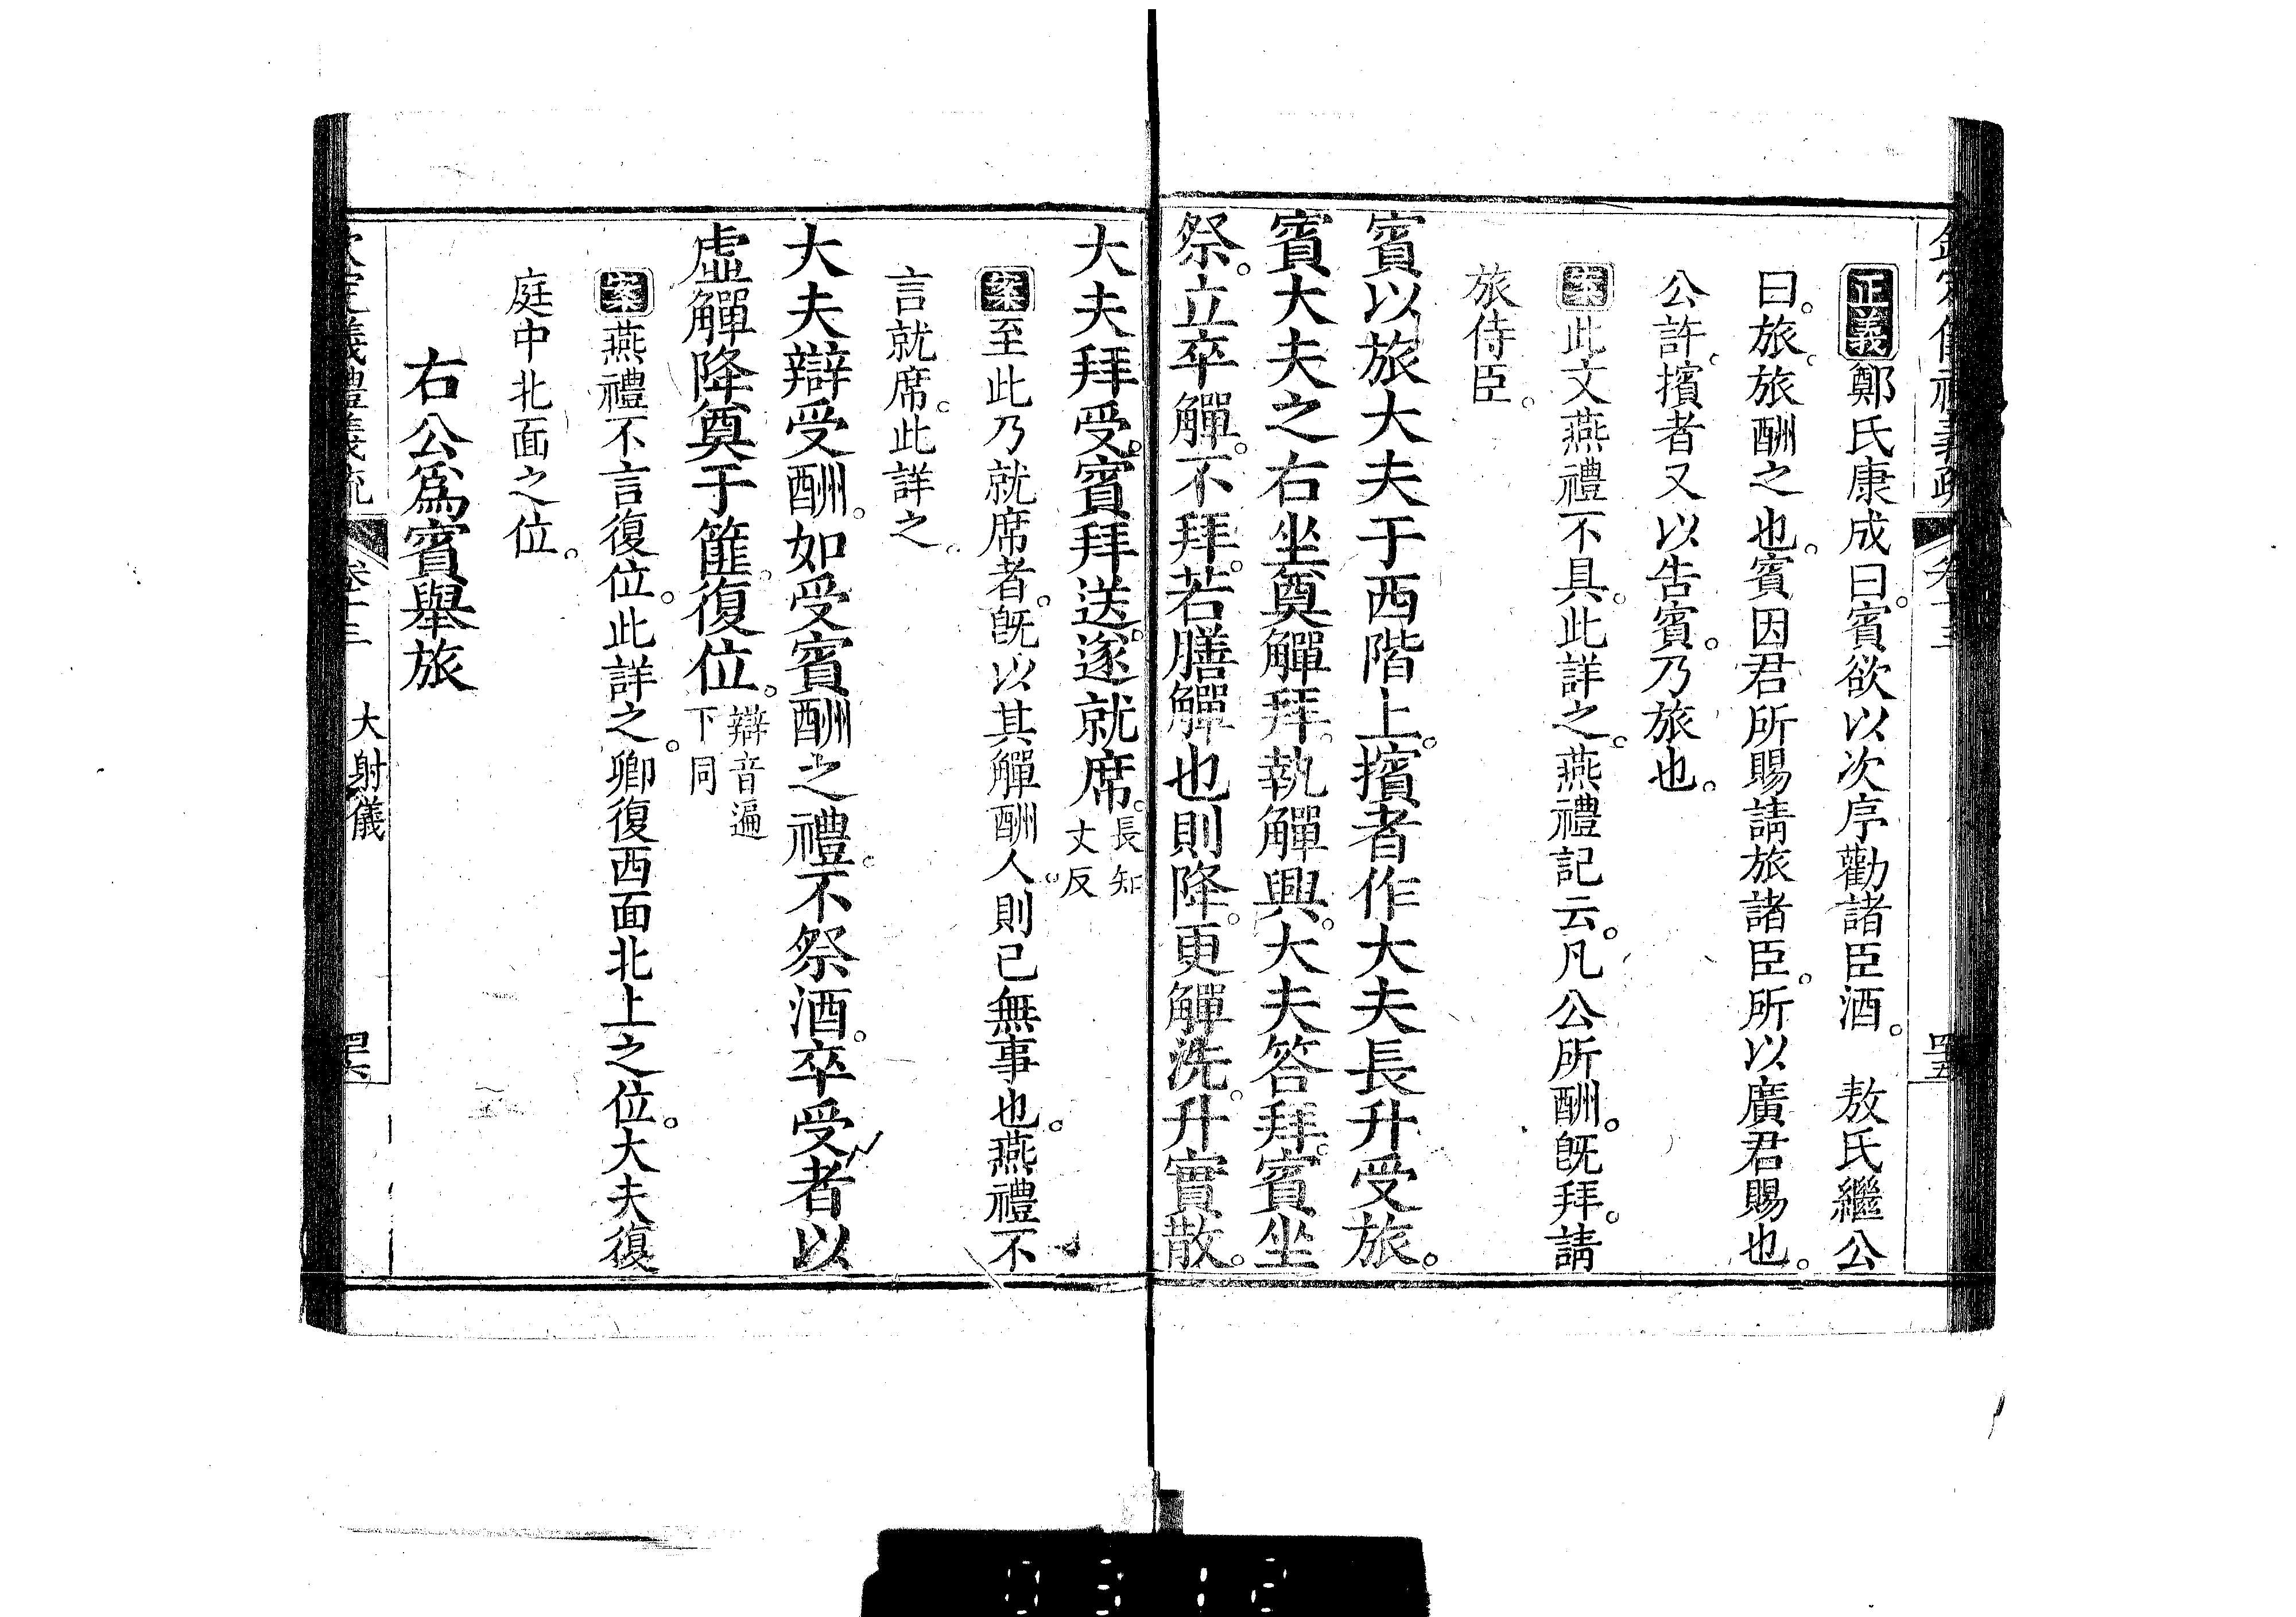 欽定儀禮義疏 卷十三 四五
正義鄭氏康成曰。賓欲以次序勸諸臣酒。 敖氏繼公
曰。旅。旅酬之也。賓因君所賜請旅諸臣。所以廣君賜也。
公許。擯者又以告賓。乃旅也。
案此文燕禮不具。此詳之。燕禮記云。凡公所酬。旣拜。請
旅侍臣。
賓以旅大夫于西階上。擯者作大夫長升受旅。
賓大夫之右坐奠觶拜。執觶興。大夫答拜。賓坐
祭。立卒觶。不拜。若膳觶也則降。更觶洗。升實散。
大夫拜受。賓拜送。遂就席。長知
丈反
案至此乃就席者。旣以其觶酬人。則已無事也。燕禮不
言就席。此詳之。
大夫辯受酬。如受賓酬之禮。不祭酒。卒受者以
虛觶降奠于篚。復位。辯音遍
下同
案燕禮不言復位。此詳之。卿復西面北上之位。大夫復
庭中北面之位。
右公爲賓舉旅
欽定儀禮義疏 卷十三 大射儀 四六
0312